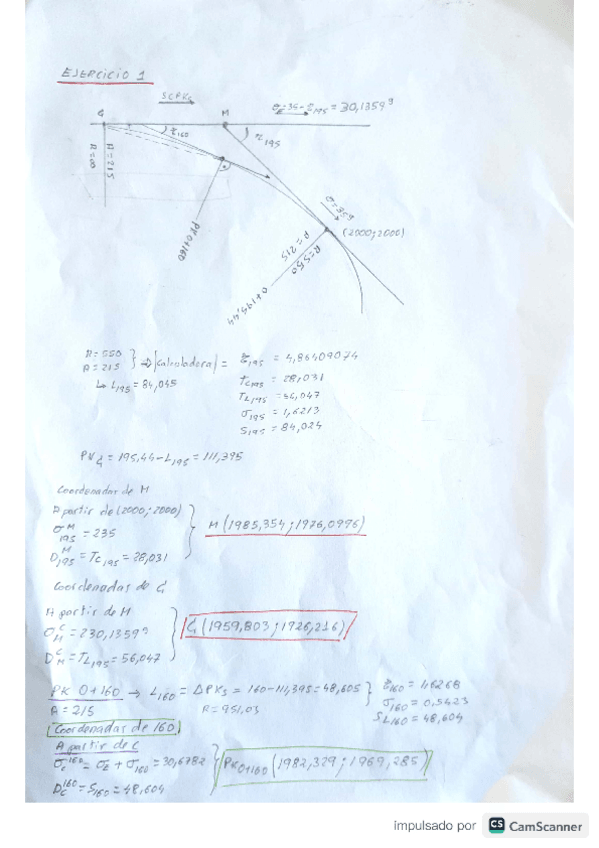 EJERCICIO 1
SCPKs
M
= 30,1359g
τ160
τ195
R=∞
A=215
PK 0+160
σ=35g
(2000;2000)
A=215
R=550
0+195,44
R=550
A=215
→ |calculadora| =
↳ L195=84,045
τ195 = 4,86409074
Tc195 = 28,031
TL195 = 56,047
σ195 = 1,6213
S195 = 84,024
= 195,44-L195 = 111,395
Coordenadas de M
A partir de (2000;2000)
= 235
= Tc195 = 28,031
M (1985,354;1976,0996)
Coordenadas de
A partir de M
= 230,1359g
= TL195 = 56,047
(1959,803;1926,216)
PK 0+160 → L160 = ΔPKs = 160-111,395=48,605
A=215
R=951,03
τ160 = 1,6268
σ160 = 0,5423
SL160 = 48,604
Coordenadas de 160
A partir de C
+ σ160 = 30,6782
= S160 = 48,604
PK0+160 (1982,329;1969,285)
impulsado por CS CamScanner